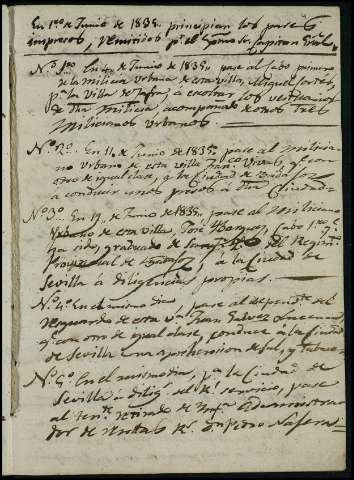 En 1º de Junio de 1835 principian los pases
impresos, remitidos pr. el Exmo. Sr. Capitan Gral.
Nº 1º En de Junio de 1835 pase al Cabo primero
de la milicia Urbana de esta villa, Miguel Cortés,
pa. la Villa de Zafra, á escoltar los vestuarios
de dha milicia acompañado de otros tres
Milicianos Urbanos.
Nº 2º En 14 de Junio de 1835 pase al milicia
no urbano de esta villa Franco. Vivas, qe. con
otro de igual clase, á la Ciudad de Badajoz
á conducir unos presos á dha Ciudad
Nº 3º En 19 de Junio de 1835 pase al Miliciano
Urbano de esta villa, José Barqon, Cabo 1º qe.
ha sido, graduado de del Regimto.
Provincial de Badajoz, á la Ciudad de
Sevilla á diligencias propias.
Nº 4º En el mismo dia, pase al dependte. del
resguardo de esta va. Juan Galvez
qe. con otro de igual clase, conduce á la Ciudad
de Sevilla una aprehension de sal, y tabaco
Nº 5º En el mismo dia, pa. la Ciudad de
Sevilla á dilig. del Rl. servicio, pase
al Tente. retirado de Infa. Administra
dor de rentas Rs. Dn. Pedro Najera